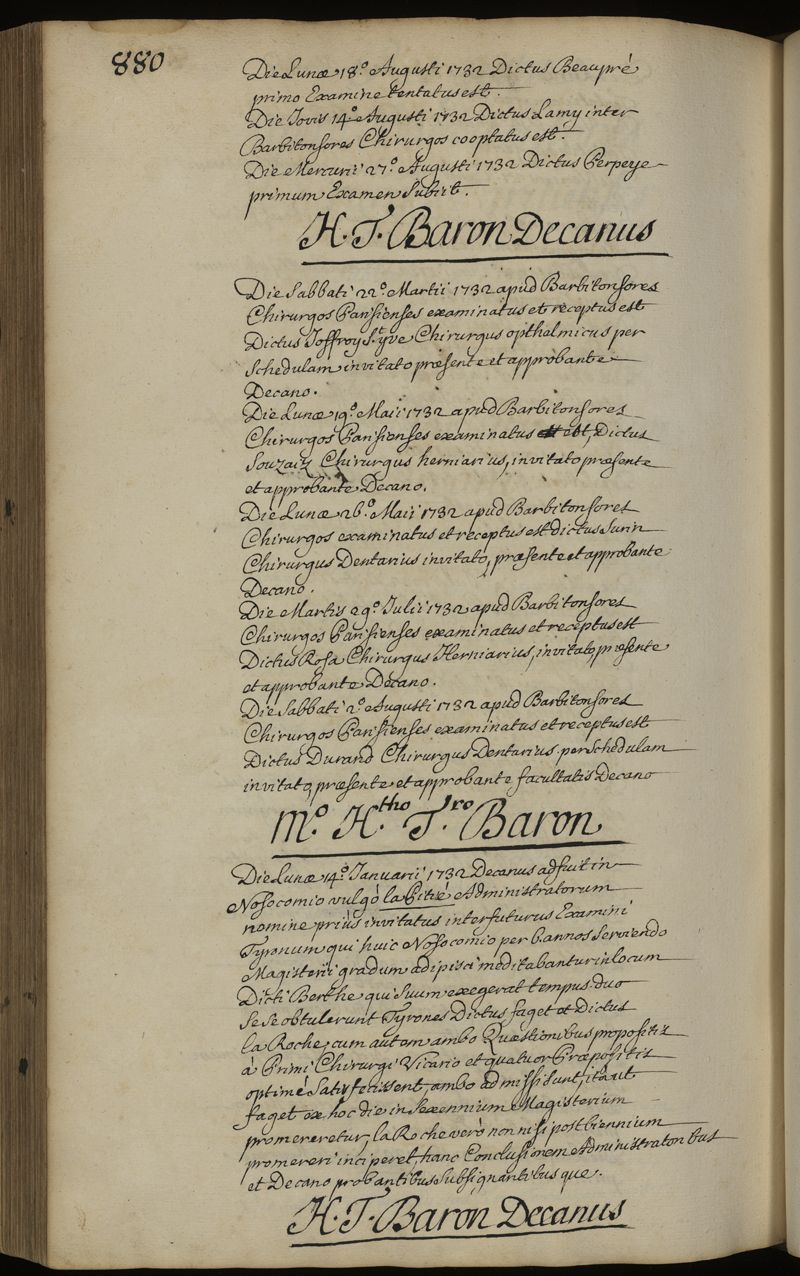 880
Die Lunæ 18.º Augusti 1732 Dictus Beaupré
primo Examine tentatus est.
Die Jovis 14º Augusti 1732 Dictus Lamy inter
Barbitonsores Chirurgos cooptatus est.
Die Mercurii 27.º Augusti 1732 Dictus Perpeye
primum Examen Subiit.
H. T. Baron Decanus
Die Sabbati 22.º Martii 1732 apud Barbitonsores
Chirurgos Parisienses examinatus et receptus est
Dictus Joffroy St. yve Chirurgus opthelmicus per
Schedulam invitato præsente et approbante
Decano.
Die Lunæ 19º Maii 1732 apud Barbitonsores
Chirurgos Parisienses examinatus est, Dictus
Chirurgus herniarius, invitato præsente
et approbante Decano.
Die Lunæ 26.º Maii 1732 apud Barbitonsores
Chirurgos examinatus et receptus est dictus Surin
Chirurgus Dentarius invitato, præsente et approbante
Decano.
Die Martis 29º Julii 1732 apud Barbitonsores
Chirurgos Parisienses examinatus et receptus est
Dictus Rosa Chirurgus Herniarius, invitato, præsente
et approbante Decano.
Die Sabbati 2º Augusti 1732 apud Barbitonsores
Chirurgos Parisienses examinatus et receptus est
Dictus Durand Chirurgus Dentarius per Schedulam
invitato, præsente et approbante facultatis Decano
M.º H.tho T.ro Baron
Die Lunæ 14.º Januarii 1732 Decanus adfuit in
Nosocomio vulgò la Pitié Administratorum
nomine priùs invitatus interfuturus Examini
Tyronum qui huic Nosocomio per 6 annos Serviendo
Magisterii gradum adipisci meditabantur in locum
Dicti Berthe qui Suum exegerat tempus. duo
Se Se obtulerunt Tyrones Dictus faget et Dictus
la Roche, cum autem ambo Quæstionibus propositis
à Primi Chirurgi Vicario et quatuor Præpositis
optimé Satisfecissent, ambo admissi sunt, ita ut
faget ex hoc die in Sexennium Magisterium
promereretur, la Roche verò non nisi post biennium
promereri inciperet, hanc Conclusionem Administratoribus
et Decano probantibus Subsignantibus que.
H. T. Baron Decanus